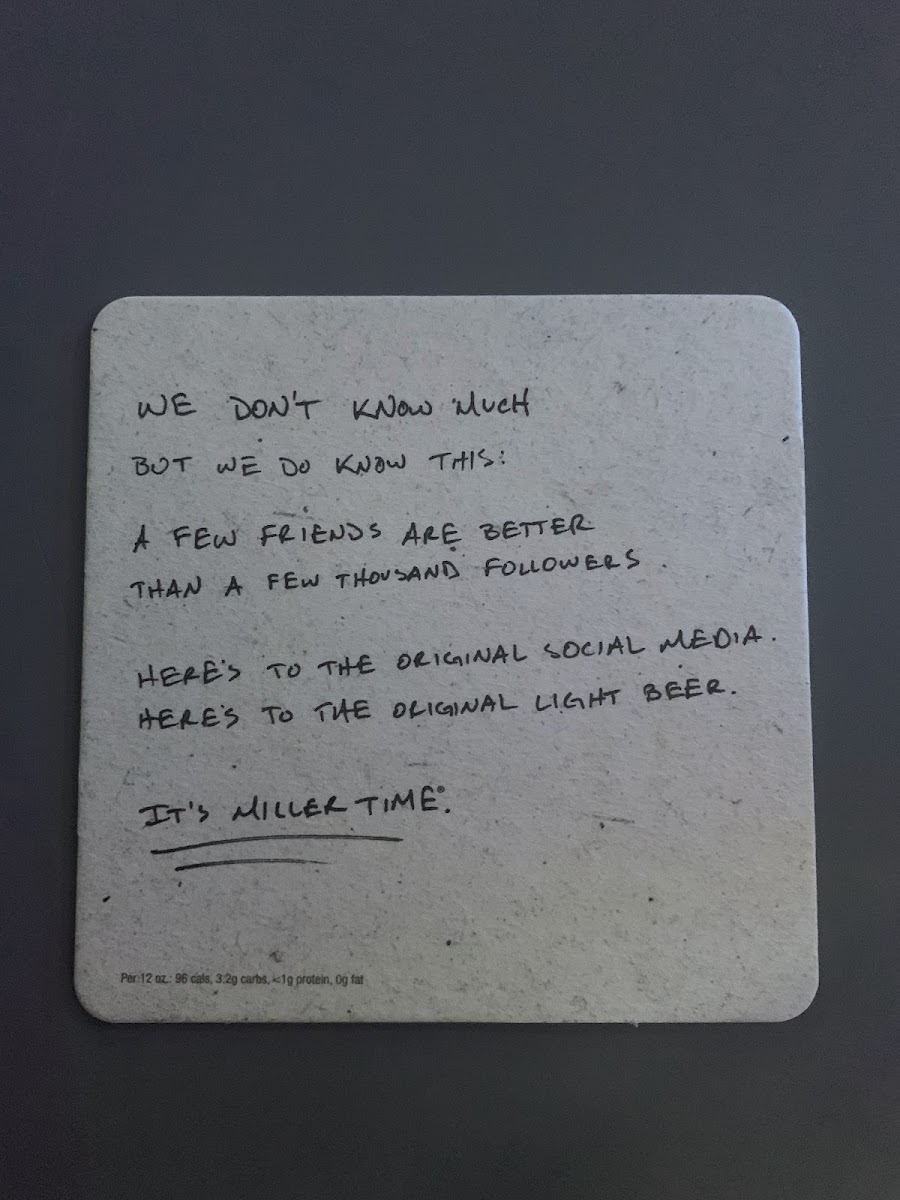 WE DON'T KNOW MUCH
BUT WE DO KNOW THIS:
A FEW FRIENDS ARE BETTER
THAN A FEW THOUSAND FOLLOWERS.
HERE'S TO THE ORIGINAL SOCIAL MEDIA.
HERE'S TO THE ORIGINAL LIGHT BEER.
IT'S MILLER TIME®.
Per 12 oz.: 96 cals, 3.2g carbs, <1g protein, 0g fat